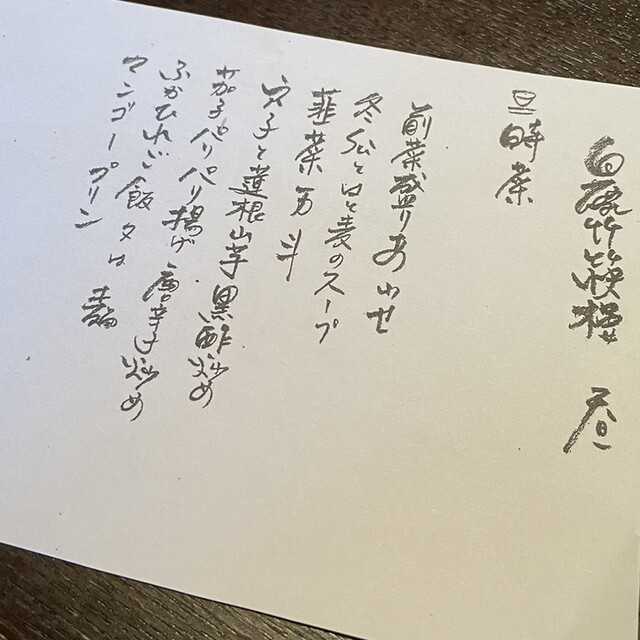 白
昼
旦時菜
前菜盛りあわせ
冬瓜とはと麦のスープ
韮菜万斗
穴子と蓮根山芋黒酢炒め
茄子パリパリ揚げ唐辛し炒め
ふかひれご飯又は
マンゴープリン